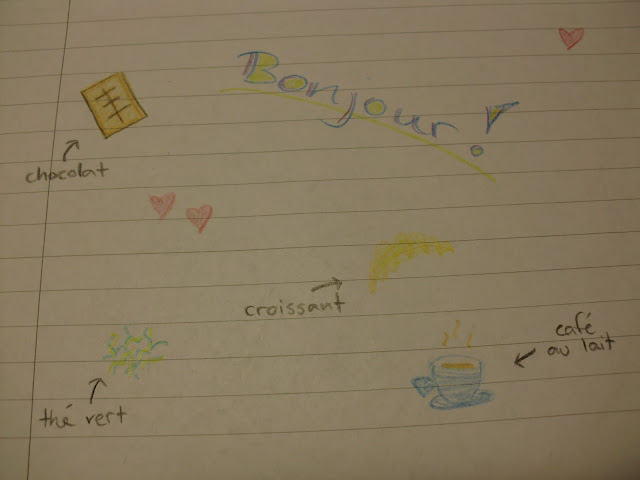 Bonjour!
chocolat
croissant
café
au lait
thé vert